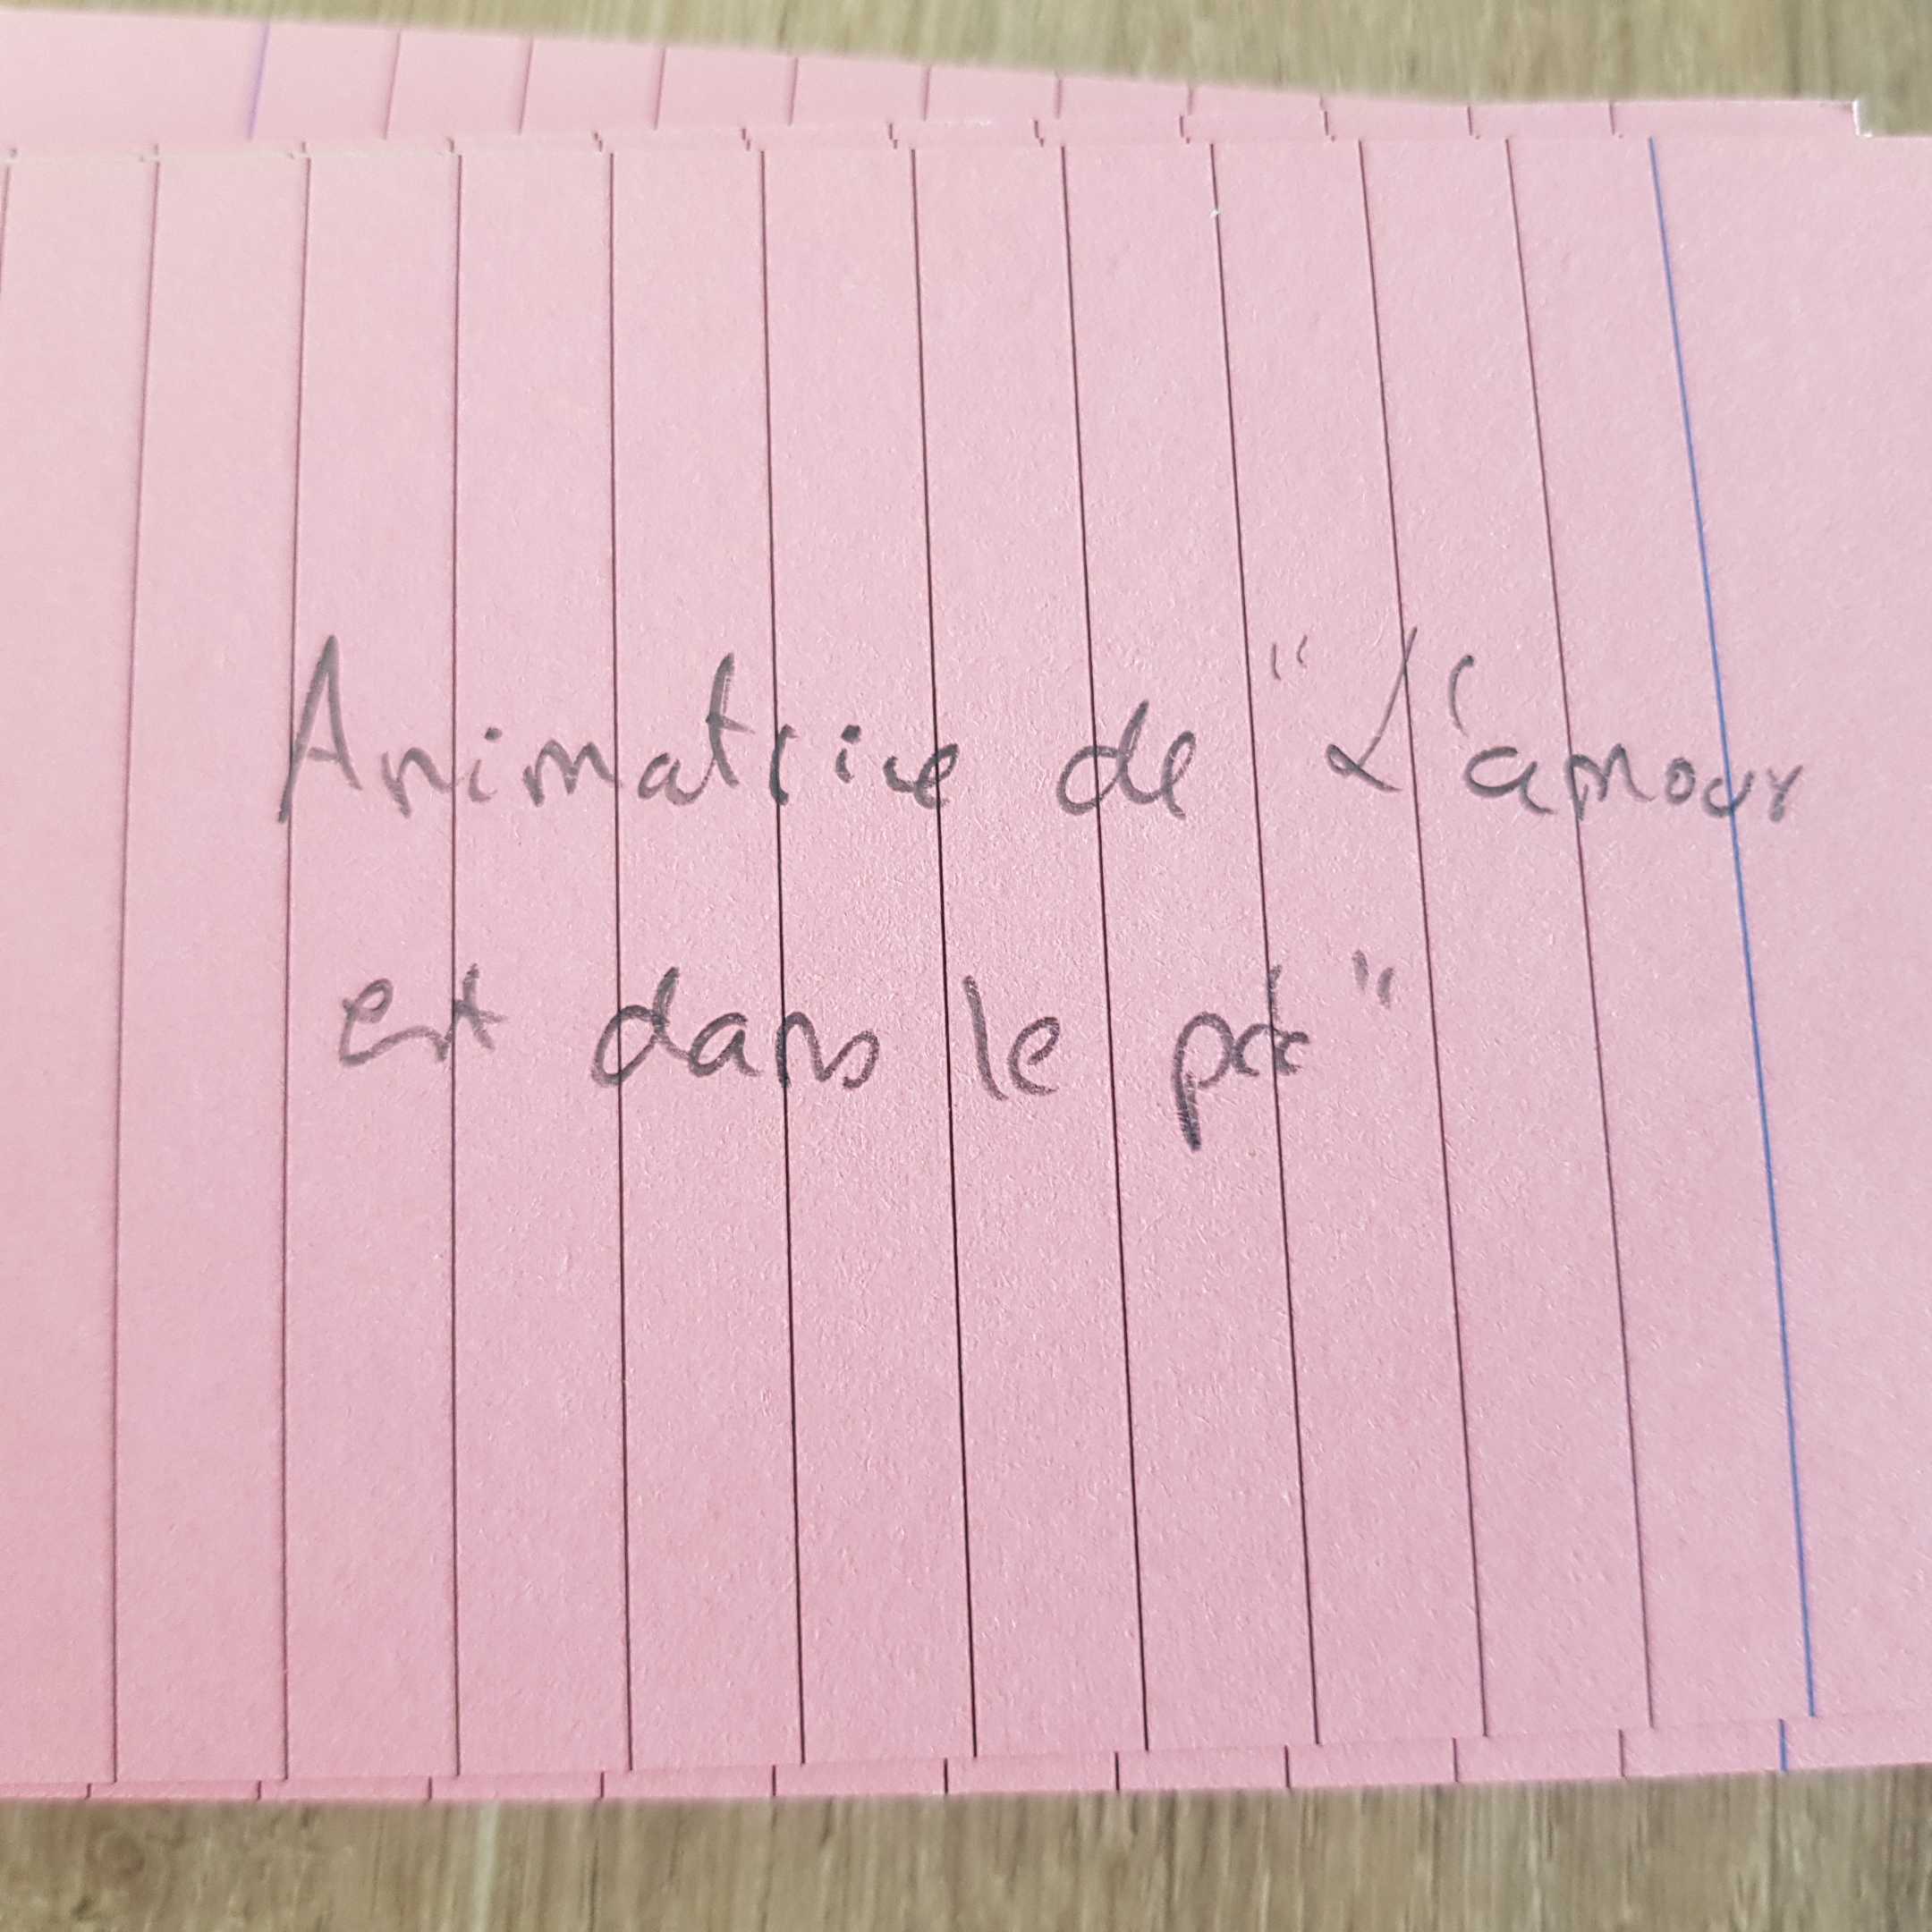 Animatrice de "L'amour
est dans le "